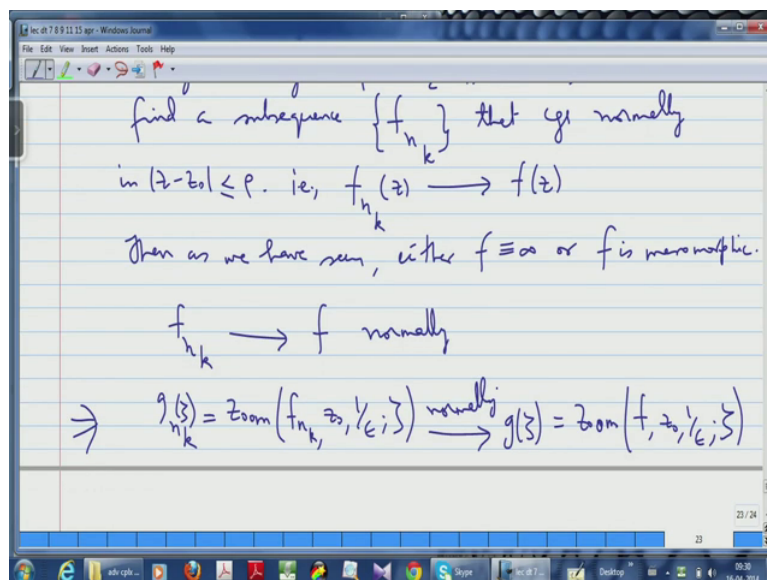 lec dt 7 8 9 11 15 apr - Windows Journal
File Edit View Insert Actions Tools Help
find a subsequence {f_{n_k}} that cgs normally
in |z-z₀| ≤ ρ. ie., f_{n_k}(z) ⟶ f(z)
Then as we have seen, either f ≡ ∞ or f is meromorphic.
f_{n_k} ⟶ f normally
⇒ g_{n_k}(ζ) = Zoom(f_{n_k}, z₀, 1/ϵ; ζ) normally ⟶ g(ζ) = Zoom(f, z₀, 1/ϵ; ζ)
23 / 24
23
adv cplx ...
Skype
lec dt 7 ...
Desktop
09:30